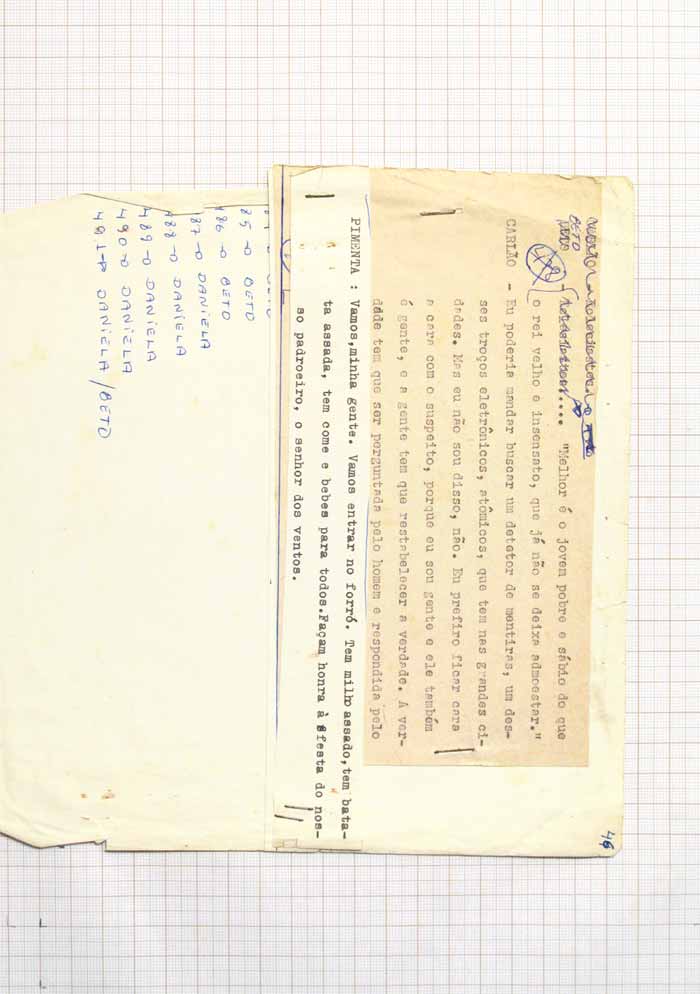 46
BETO
478 .... "Melhor é o jovem pobre e sábio do que
o rei velho e insensato, que já não se deixa admoestar."
CARLÃO - Eu poderia mandar buscar um detetor de mentiras, um des-
ses troços eletrônicos, atômicos, que tem nas grandes ci-
dades. Mas eu não sou disso, não. Eu prefiro ficar cara
a cara com o suspeito, porque eu sou gente e ele também
é gente, e a gente tem que restabelecer a verdade. A ver-
dade tem que ser perguntada pelo homem e respondida pelo
PIMENTA : Vamos,minha gente. Vamos entrar no forró. Tem milho assado,tem bata-
ta assada, tem come e bebes para todos.Façam honra à festa do nos-
so padroeiro, o senhor dos ventos.
85 → BETO
486 → BETO
487 → DANIELA
488 → DANIELA
489 → DANIELA
490 → DANIELA
491 → DANIELA / BETO